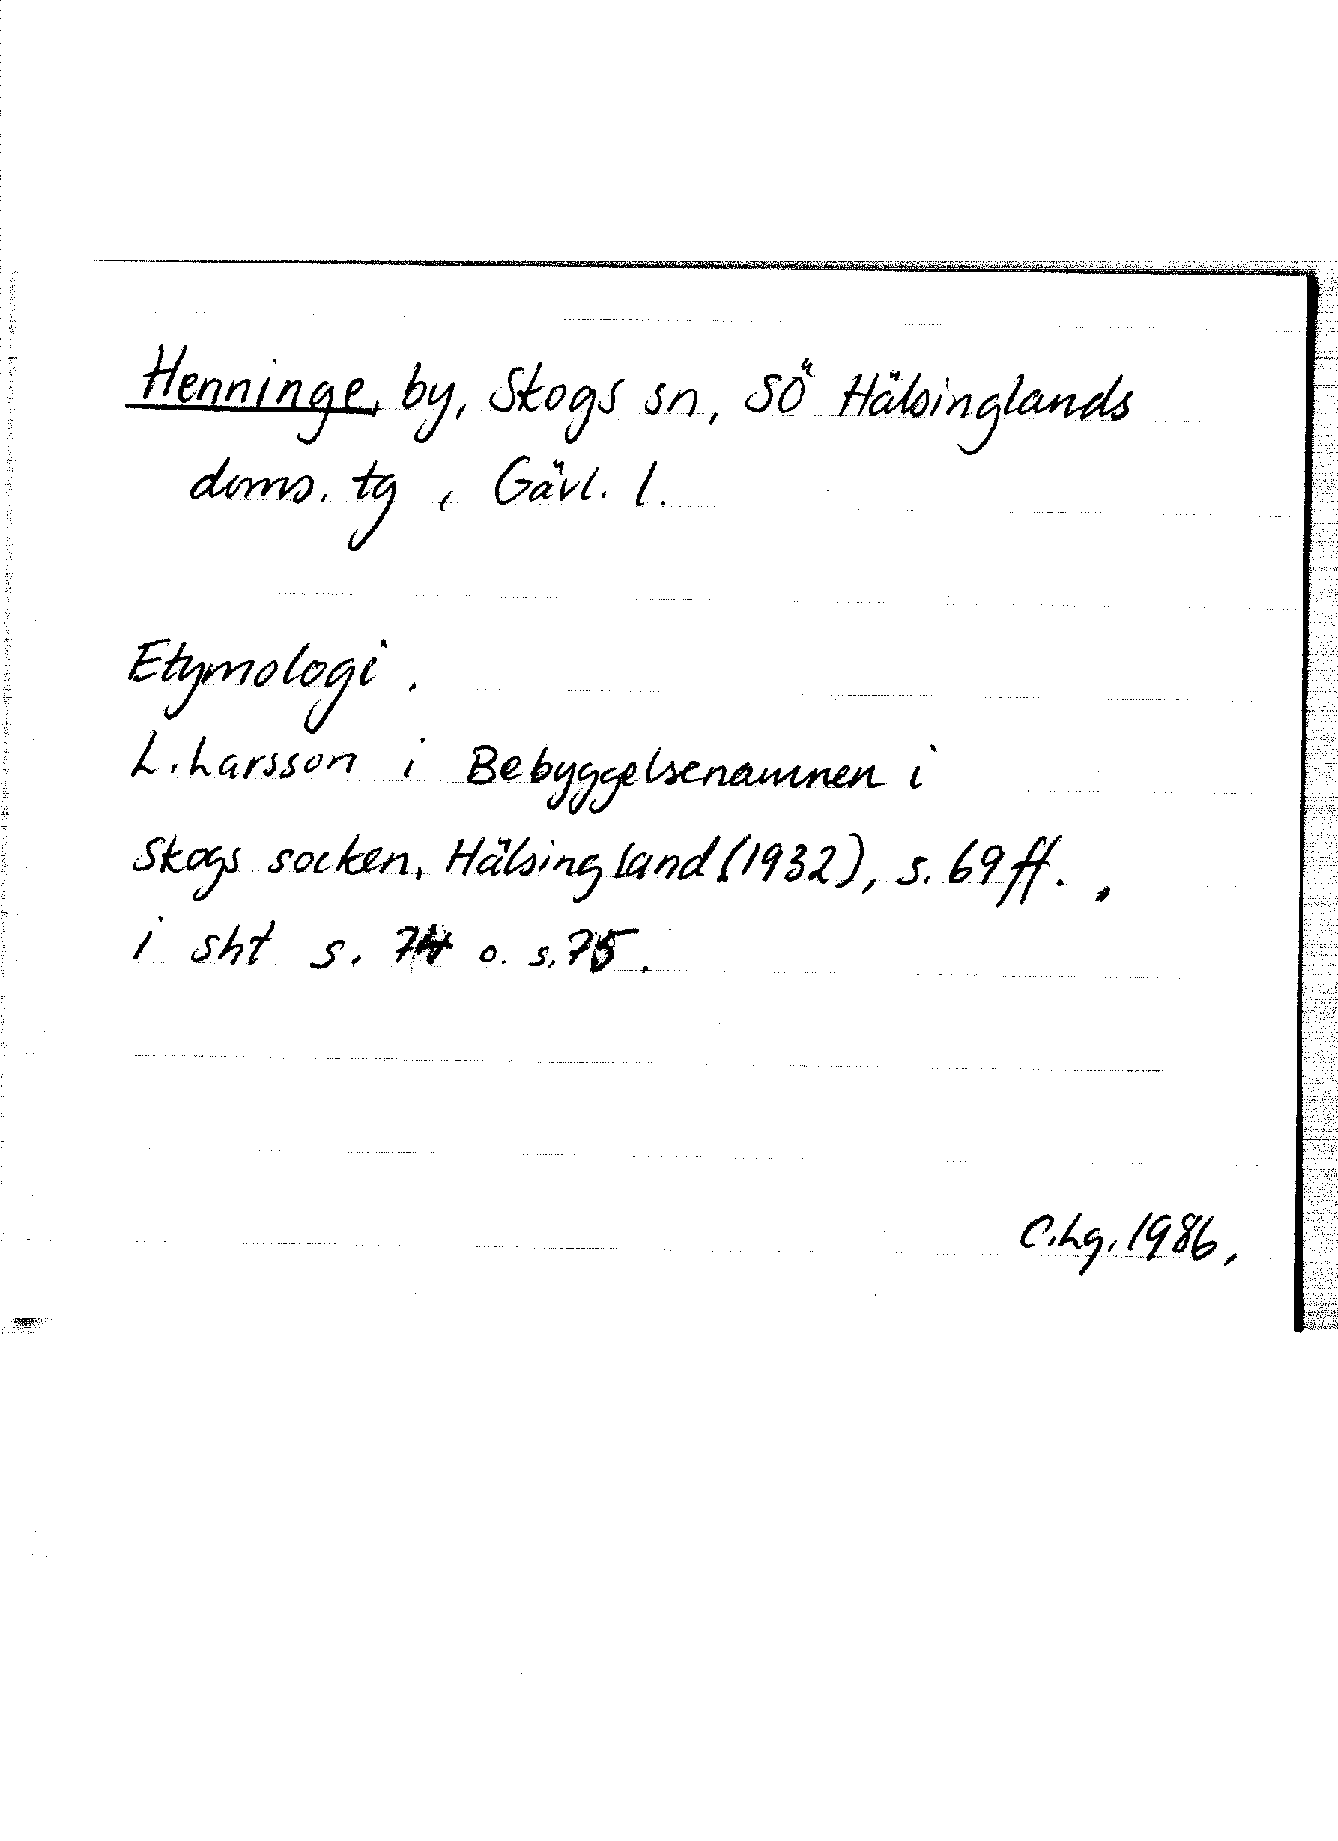 Henninge, by, Skogs sn, SÖ Hälsinglands
doms. tg, Gävl. l.
Etymologi.
L. Larsson i Bebyggelsenamnen i
Skogs socken, Hälsingland (1932), s. 69 ff.,
i sht s. 74 o. s. 75.
C. Lg. 1986.